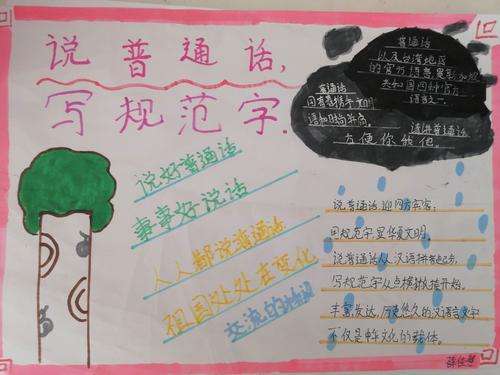 说普通话,
写规范字.
普通话
以及台湾地区
的官方语言是新加坡
共和国四种官方
语言之一.
普通话
同青春携手,文明
语和时尚并肩。
请讲普通话
方便你我他。
说好普通话
事事好说话
人人都说普通话
祖国处处在变化
交流的
说普通话,迎四方宾客;
用规范字,显华夏文明。
说普通话从汉语拼音起步,
写规范字从点横撇捺开始。
丰富发达,历史悠久的汉语言文字
不仅是中华文化的载体。